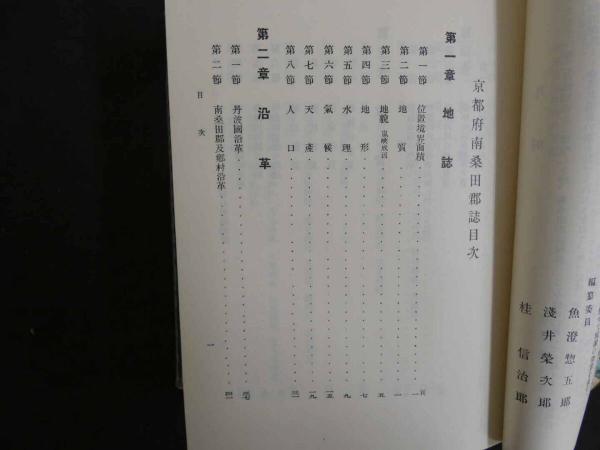 編纂委員
魚澄惣五郎
淺井榮次郎
桂信治郎
京都府南桑田郡誌目次
第一章 地誌
第一節 位置境界面積 一頁
第二節 地質 一
第三節 地貌 嵐峽成因 五
第四節 地形 七
第五節 水理 九
第六節 氣候 一五
第七節 天產 一九
第八節 人口
第二章 沿革
第一節 丹波國沿革
第二節 南桑田郡及鄉村沿革
目次 一